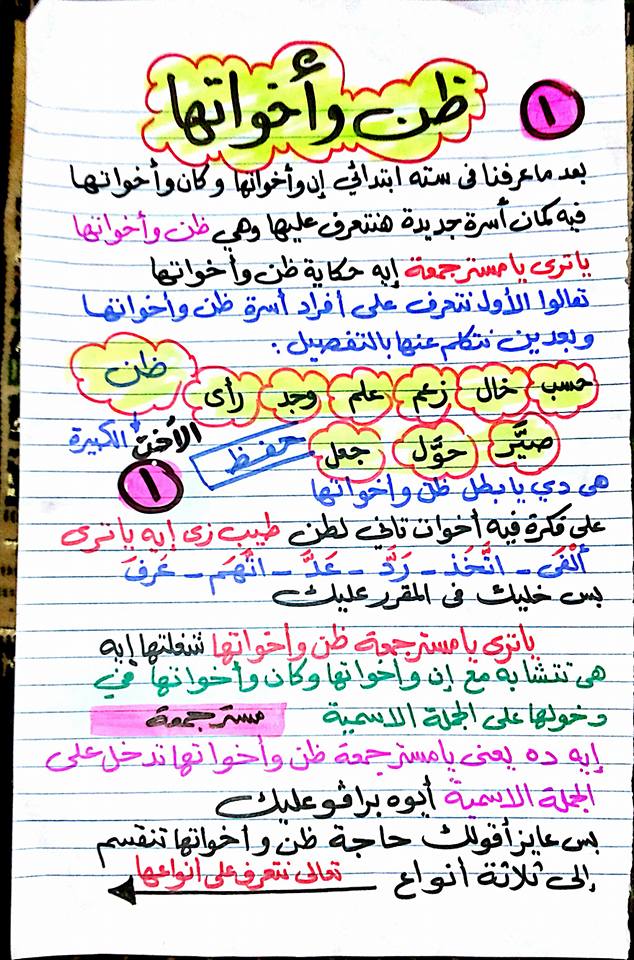 ظن وأخواتها
١
بعد ما عرفنا فى سته ابتدائي إن وأخواتها وكان وأخواتها
فيه كمان أسرة جديدة هنتعرف عليها وهي ظن وأخواتها
ياترى يا مستر جمعة إيه حكاية ظن وأخواتها
تعالوا الأول نتعرف على أفراد أسرة ظن وأخواتها
وبعدين نتكلم عنها بالتفصيل :
ظن
حسب خال زعم علم وجد رأى
الأخت الكبيرة
صيَّر حوَّل جعل
حفظ
١
هى دي يا بطل ظن وأخواتها
على فكرة فيه أخوات تانى لظن طيب زى إيه ياترى
ألْفَى - اتَّخَذ - رَدَّ - عَدَّ - اتَّهَم - عَرفَ
بس خليك فى المقرر عليك
ياترى يا مستر جمعة ظن وأخواتها شغلتها إيه
هى تتشابه مع إن وأخواتها وكان وأخواتها في
دخولها على الجملة الاسمية مستر جمعة
إيه ده يعنى يا مستر جمعة ظن وأخواتها تدخل على
الجملة الاسمية أيوه برافو عليك
بس عايز أقولك حاجة ظن وأخواتها تنقسم
إلى ثلاثة أنواع تعالى نتعرف على أنواعها